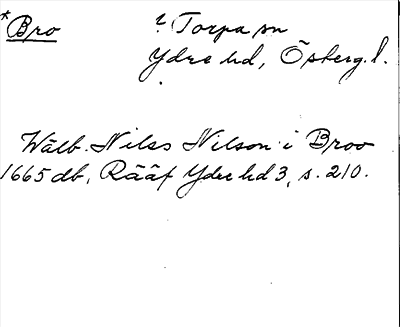 *Bro ? Torpa sn
Ydre hd, Österg. l.
Wälb. Nils Nilson i Broo
1665 db, Rääf Ydre hd 3, s. 210.